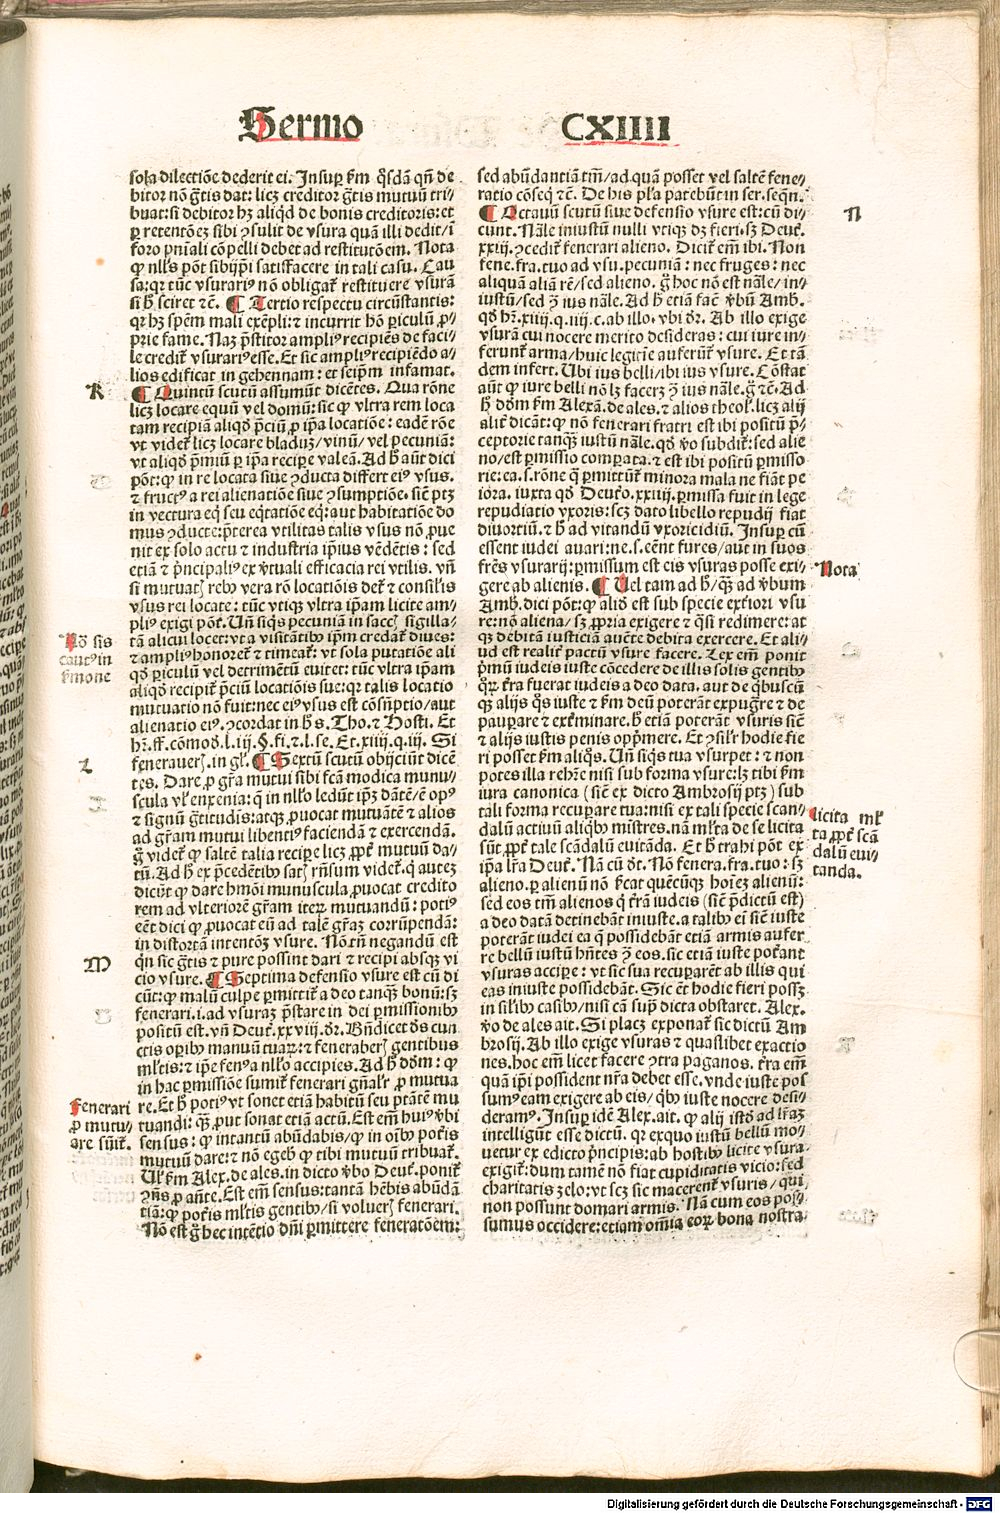 Sermo CXIIII
sola dilectiōe dederit ei. Insuꝑ ẜm q̊sdā qn̄ de
bitor nō gr̄tis dat: licꝫ creditor gr̄tis mutuū tri/
buat: si debitor hꝫ aliqd̓ de bonis creditoris: et
ꝑ retentōeꝫ sibi ꝯsulit de vsura quā illi dedit/ ī
foro pn̄iali cōpelli debet ad restitutōem. Nota
sa: qꝛ tūc vsurariꝰ nō obligat᷑ restituere vsurā
si h̄ sciret ⁊c. ¶ Tertio respectu circūstantis:
qꝛ hꝫ spēm mali exēpli: ⁊ incurrit hō ꝑiculū ꝓ/
prie fame. Naꝫ p̄stitor ampliꝰ recipiēs de faci/
le credit᷑ vsurariꝰ esse. Et sic ampliꝰ recipiēdo a/
lios edificat in gehennam: et seip̄m infamat.
K
¶ Quintū scutū assumūt dicētes. Qua rōne
licꝫ locare equū vel domū: sic ꝙ vltra rem loca
tam recipiā aliqd̓ p̄ciū ꝓ ip̄a locatiōe: eadē rōe
vt videt᷑ licꝫ locare bladuꝫ/ vinū/ vel pecuniā:
vt aliqd̓ p̄miū ꝑ ip̄a recipe valeā. Ad h̄ aūt dici
pōt: ꝙ in re locata siue ꝯducta differt eiꝰ vsus.
⁊ fructꝰ a rei alienatiōe siue ꝯsumptiōe. sic̄ ptꝫ
in vectura eq̇ seu eq̇tatiōe eq̇: aut habitatiōe do
mus ꝯducte: p̄terea vtilitas talis vsus nō ꝓue
nit ex solo actu ⁊ industria ip̄ius vēdētis: sed
etiā ⁊ p̄ncipaliꝰ ex v̓tuali efficacia rei vtilis. vn̄
vsus rei locate: tūc vtiqꝫ vltra ip̄am licite am/
pliꝰ exigi pōt᷑. Un̄ siq̇s pecuniā in sacco sigilla/
Nō sis
cautꝰ in
ẜmone
tā alicui locet: vt a visitātibꝰ ip̄m credat᷑ diues:
⁊ ampliꝰ honoret᷑ ⁊ timeat᷑: vt sola putatiōe ali
qd̓ ꝑiculū vel detrimētū euitet: tūc vltra ip̄am
aliqd̓ recipit᷑ p̄ciū locatiōis sue: qꝛ talis locatio
mutuatio nō fuit: nec eiꝰ vsus est cōsūptio/ aut
alienatio eiꝰ. ꝯcordat in h̄ s. Tho. ⁊ Hosti. Et
hr̄. ff. cōmod̓. l. iij. §. fi. ⁊ l. se. Et. xiiij. q. iij. Si
L
fenauerꝭ. in gl̓. ¶ Sextū scutū obijciūt dicē
tes. Dare ꝓ gr̄a mutui sibi fc̄ā modica munu/
scula vl̓ enxenia: q̄ in nl̓lo ledūt ipꝫ dātē/ ē opꝰ
⁊ signū gr̄titudīs: atqꝫ ꝓuocat mutuātē ⁊ alios
ad gr̄am mutui libentiꝰ faciendā ⁊ exercendā.
tū. Ad h̄ ex p̄cedētibꝰ satꝭ rn̄sum videt᷑. q̇ auteꝫ
dicūt᷑ ꝙ dare hmōi munuscula ꝓuocat credito
rem ad vlteriorē gr̄am iteꝝ mutuandū: potiꝰ
eēt dici ꝙ ꝓuocat eū ad talē gr̄aꝫ corrūpendā:
in distortā intentōeꝫ vsure. Nō tn̄ negandū est
M
qn̄ sic gr̄tis ⁊ pure possint dari ⁊ recipi absqꝫ vi
cio vsure. ¶ Septima defensio vsure est cū di
cūt: ꝙ malū culpe ꝑmittit᷑ a deo tanqꝫ bonū: sꝫ
fenerari. i. ad vsuraꝫ p̄stare in dei ꝑmissiōibꝰ
positū est. vn̄ Deut᷑. xxviij. dr̄. Bn̄dicet dn̄s cun
ctis oꝑibꝰ manuū tuaꝝ: ⁊ fenerabꝭ gentibus
ml̓tis: ⁊ ip̄e fenꝰ a nl̓lo accipies. Ad h̄ dd̓m: ꝙ
in hac ꝑmissiōe sumit᷑ fenerari gn̄alr̄ ꝓ mutua
Fenerari
ꝓ mutu/
are sūit᷑.
re. Et h̄ potiꝰ vt sonet etiā habitū seu ptātē mu
tuandi: qꝫ ꝓut sonat etiā actū. Est em̄ huiꝰ v̓bi
sensus: ꝙ intantū abūdabis/ ꝙ in oībꝰ pot᷑is
mutuū dare: ⁊ nō egeb̓ ꝙ tibi mutuū tribuat᷑.
Ul̓ ẜm Alex. de ales. in dicto v̓bo Deut᷑. ponit᷑
ꝯn̄s ꝓ an̄te. Est em̄ sensus: tantā hēbis abūdā
tiā: ꝙ pot᷑is ml̓tis gentibꝰ/ si volueꝭ fenerari.
Nō est g̊ hec intētio dn̄i ꝑmittere feneratōem:
sed abūdantiā tm̄/ ad quā posset vel saltē fene/
ratio cōseq̇ ⁊c. De his pl̓a patebūt in ser. seqn̄.
N
¶ Octauū scutū siue defensio vsure est: cū di/
cunt. Nāle iniustū nulli vtiqꝫ dꝫ fieri. sꝫ Deut᷑.
xxiij. ꝯcedit᷑ fenerari alieno. Dicit᷑ em̄ ibi. Non
fene. fra. tuo ad vsu. pecuniā: nec fruges: nec
aliquā aliā rē/ sed alieno. g̊ hoc nō est nāle/ in/
iustū/ sed ꝯ̄ ius nāle. Ad h̄ etiā fac̄ v̓bū Amb̓.
qd̓ hr̄. xiiij. q. iiij. c. ab illo. vbi dr̄. Ab illo exige
vsurā cui nocere merito desideras: cui iure in/
ferunt᷑ arma/ huic legitīe auferūt᷑ vsure. Et tā
dem infert. Ubi ius belli/ ibi ius vsure. Cōstat
aūt ꝙ iure belli nō lꝫ facerꝫ ꝯ̄ ius nāle. g̊ ⁊c. Ad
h̄ dd̓m ẜm Alexā. de ales. ⁊ alios theol̓. licꝫ alij
alit᷑ dicāt: ꝙ nō fenerari fratri est ibi positū p̄/
ceptorie tanqꝫ iustū nāle. qd̓ v̓o subdit᷑: sed alie
no/ est ꝑmissio comꝑata. ⁊ est ibi positū ꝑmisso
rie: ea. s. rōne q̄ ꝑmittūt᷑ minora mala ne fiāt pe
iora. iuxta qd̓ Deut᷑o. xxiiij. ꝑmissa fuit in lege
repudiatio vxoris: scꝫ dato libello repudij fiat
diuortiū. ⁊ h̄ ad vitandū vxoricidiū. Insuꝑ cū
essent iudei auari: ne. s. eēnt fures/ aut in suos
Nota
fr̄es vsurarij: ꝑmissum est eis vsuras posse exi/
gere ab alienis. ¶ Uel tam ad h̄/ qꝫ ad v̓bum
Amb̓. dici pōt: ꝙ alid̓ est sub specie ext᷑iori vsu
re: nō aliena/ sꝫ ꝓpria exigere ⁊ q̇si redimere: at
qꝫ debitā iusticiā auēte debita exercere. Et ali/
ud est realit᷑ pactū vsure facere. Lex em̄ ponit
p̄mū iudeis iuste cōcedere de illis solis gentibꝰ
qꝛ t᷑ra fuerat iudeis a deo data. aut de q̇buscū
qꝫ alijs q̊s iuste ⁊ ẜm deū poterāt expugr̄e ⁊ de
pauꝑare ⁊ ext᷑minare. h̄ etiā poterāt vsuris sic̄
⁊ alijs iustis penis opp̄mere. Et ꝯsil̓r hodie fie
ri posset ẜm aliq̊s. Un̄ siq̇s tua vsurpet: ⁊ non
potes illa rehr̄e nisi sub forma vsure: lꝫ tibi ẜm
iura canonica (sic̄ ex dicto Ambrosij ptꝫ) sub
tali forma recuꝑare tua: nisi ex tali specie scan/
Licita ml̓
ta ꝓpt᷑ scā
dalū eui/
tanda.
dalū actiuū aliq̇bꝰ mīstres. nā ml̓ta de se licita
sūt ꝓpt᷑ tale scādalū euitāda. Et h̄ trahi pōt ex
ip̄a lr̄a Deut᷑. Nā cū dr̄. Nō fenera. fra. tuo: sꝫ
alieno. ꝑ alienū nō fecat quēcūqꝫ hoīeꝫ alienū:
sed eos tm̄ alienos q̇ t᷑rā iudeis (sic̄ p̄dictū est)
a deo datā detinebāt iniuste. a talibꝰ em̄ sic̄ iuste
poterāt iudei ea q̄ possidebāt etiā armis aufer
re bellū iustū hn̄tes ꝯ̄ eos. sic etiā iuste pot᷑ant
vsuras accipe: vt sic sua recuꝑarēt ab illis qui
eas iniuste possidebāt. Sic em̄ hodie fieri possꝫ
in sil̓ibꝰ casibꝰ/ nisi cā supͣ dicta obstaret. Alex.
v̓o de ales ait. Si placꝫ exponat᷑ sic dictū Am
brosij. Ab illo exige vsuras ⁊ quaslibet exactio
nes. hoc em̄ licet facere ꝯtra paganos. t᷑ra em̄
quā ip̄i possident nr̄a debet esse. vnde iuste pos
sumꝰ eam exigere ab eis/ q̇bꝰ iuste nocere desi/
deramꝰ. Insuꝑ idē Alex. ait. ꝙ alij istd̓ ad lr̄aꝫ
intelligūt esse dictū. qꝛ exquo iustū bellū mo/
uetur ex edicto p̄ncipis: ab hostibꝰ licite vsura
exigit᷑: dum tamē nō fiat cupiditatis vicio: sed
charitatis zelo: vt scꝫ sic macerent᷑ vsuris/ qui
non possunt domari armis. Nā cum eos pos/
sumus occidere: etiam om̄ia eoꝝ bona nostra
Digitalisierung gefördert durch die Deutsche Forschungsgemeinschaft - DFG